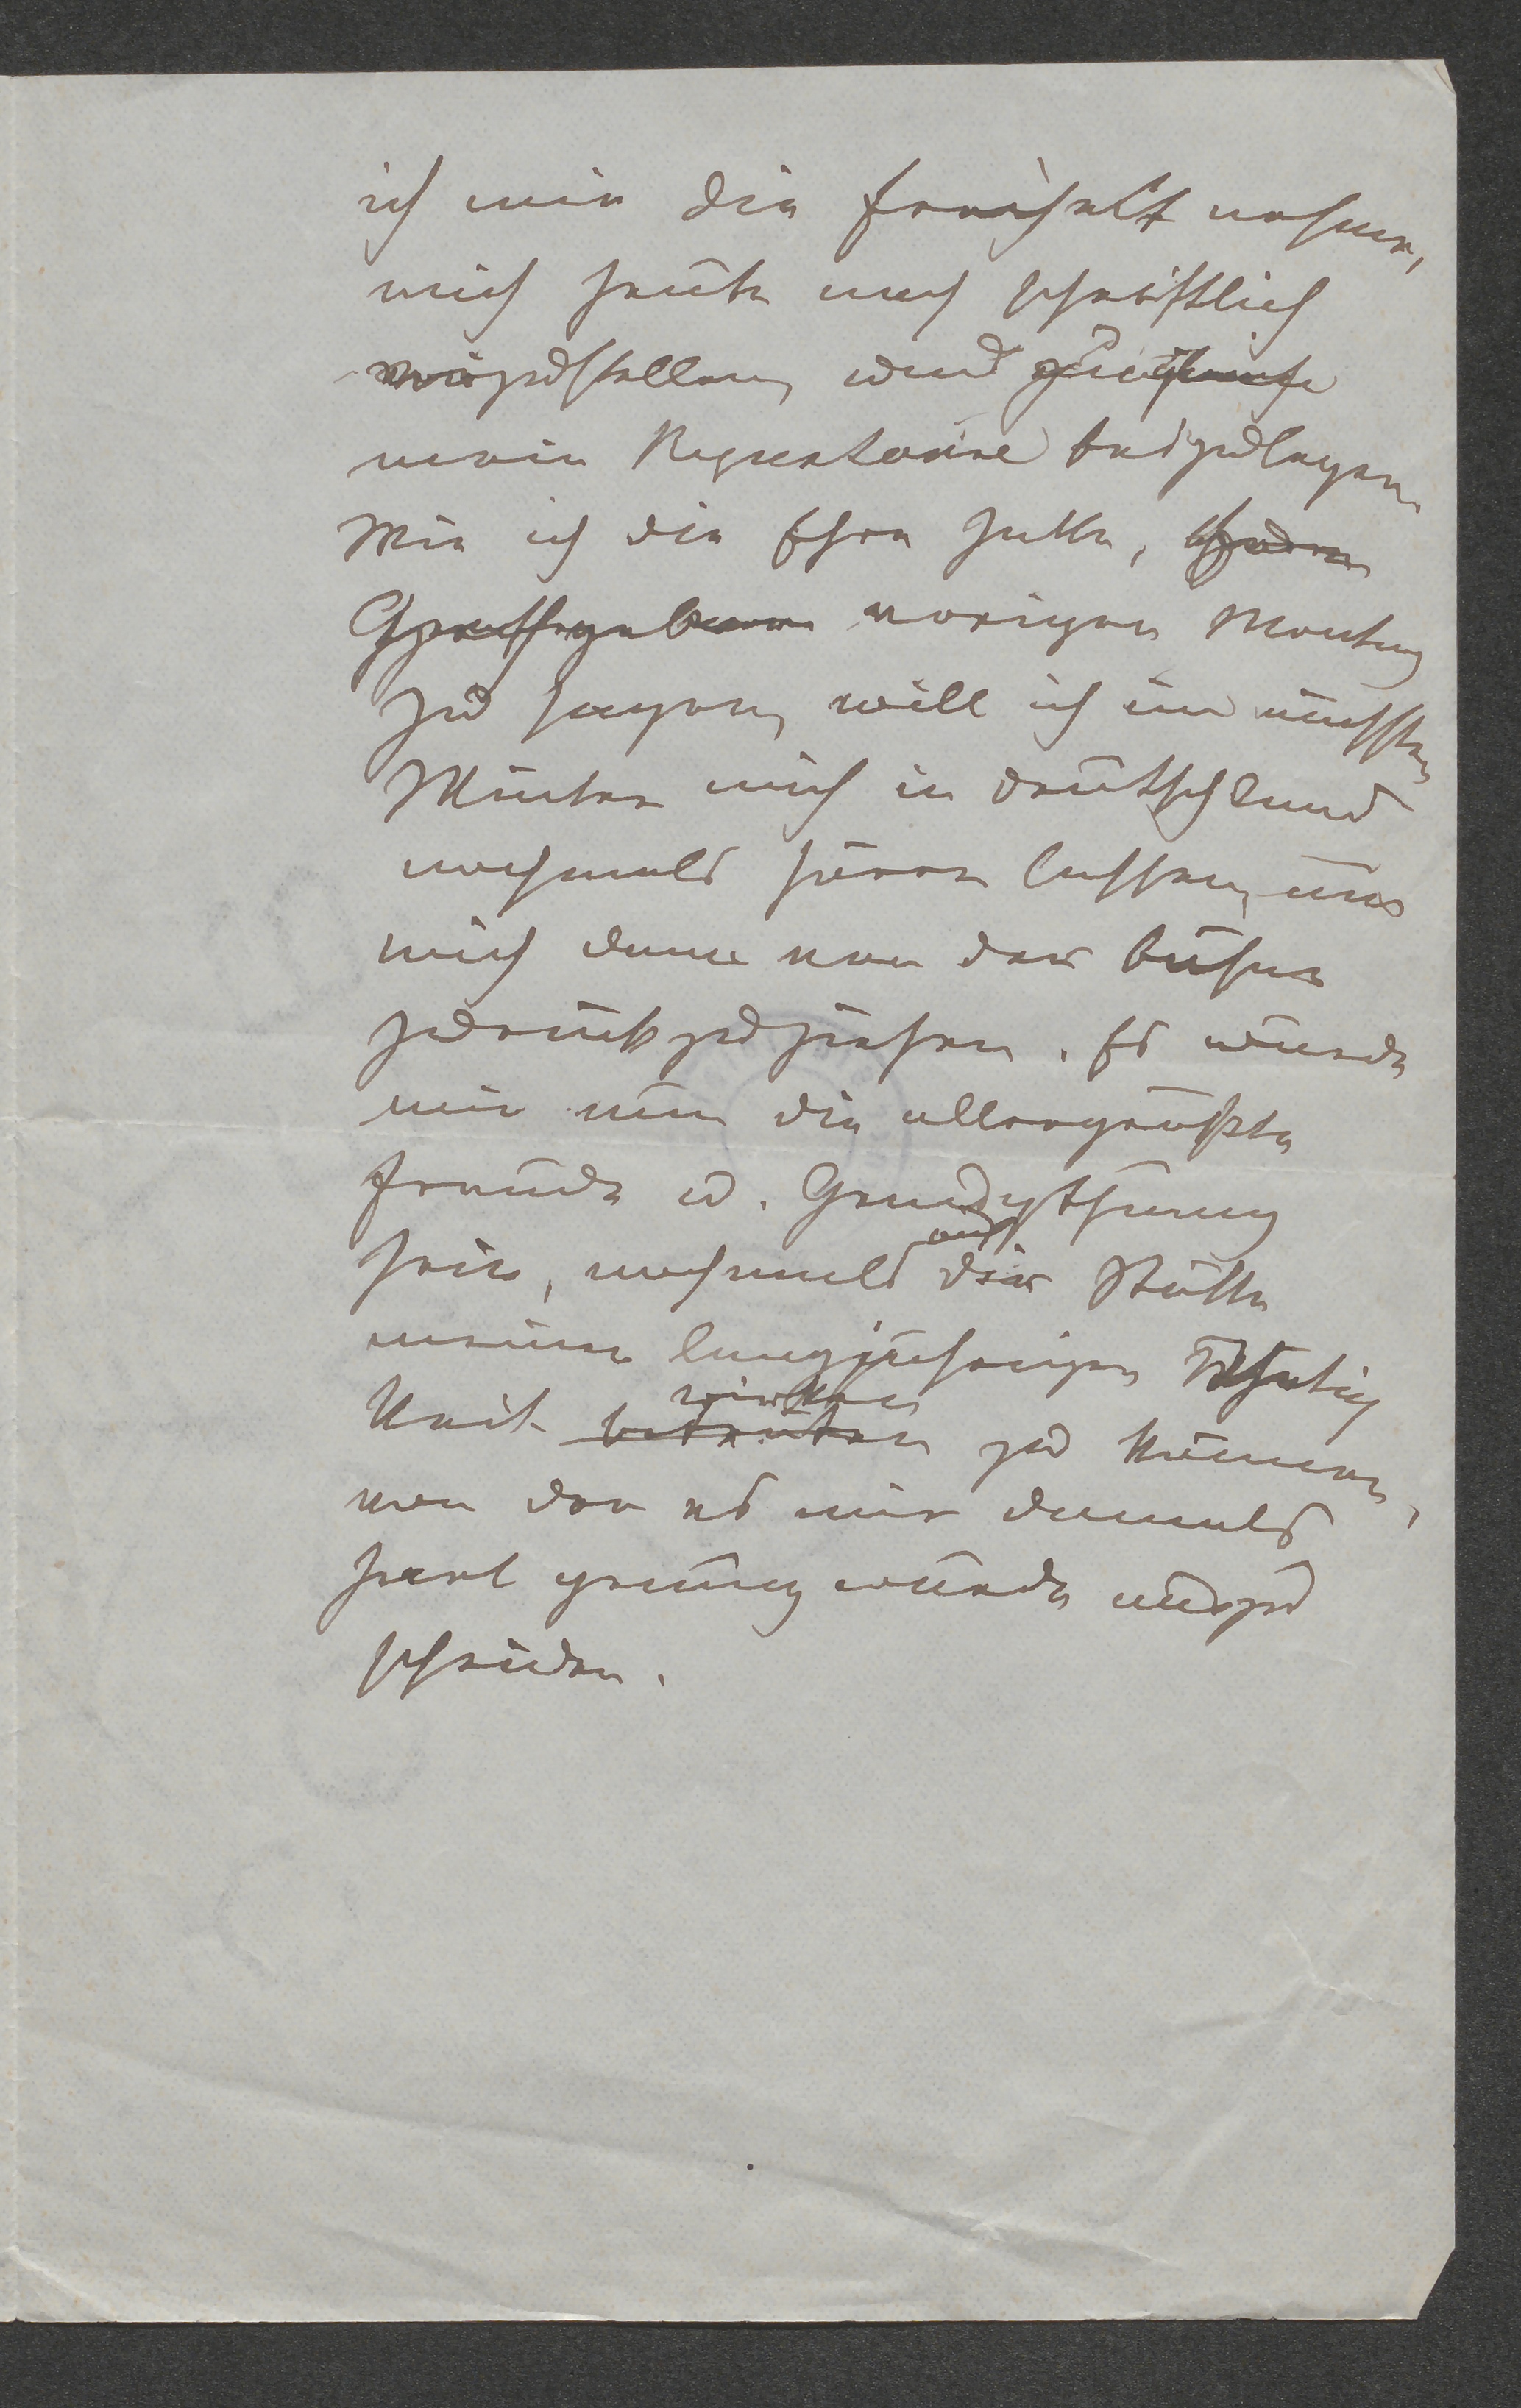 ich mir die Freiheit nehme,
mich heute noch schriftlich
vorzustellen, und zugleich
mein Repertoire beizulegen
Wie ich die Ehre hatte,
vorigen Montag
zu sagen, will ich im nächsten
Winter mich in Deutschland
nochmals hören lassen, um
mich dann von der Bühne
zurückzuziehen. Es würde
mir nun die allergrößte
Freude u. Genugthuung
sein, nochmals auf der Stätte
meiner langjährigen Thätig
keit wirken zu können,
von der es mir damals
hart genug wurde
scheiden.